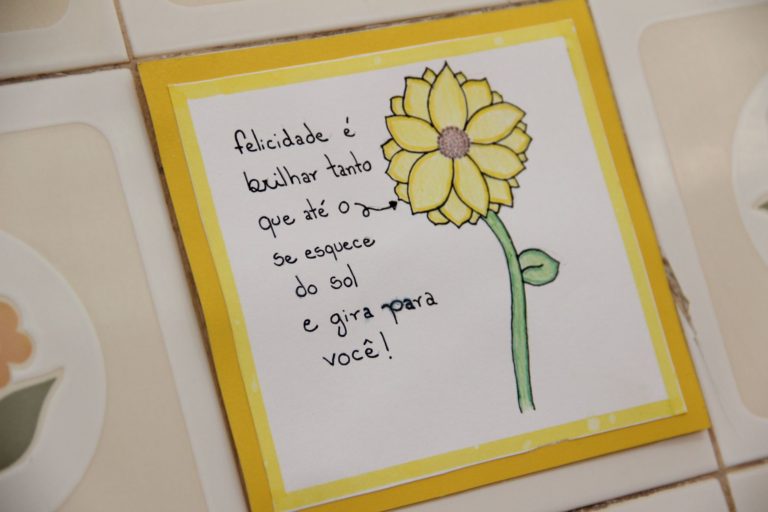 felicidade é
brilhar tanto
que até o
se esquece
do sol
e gira para
você!